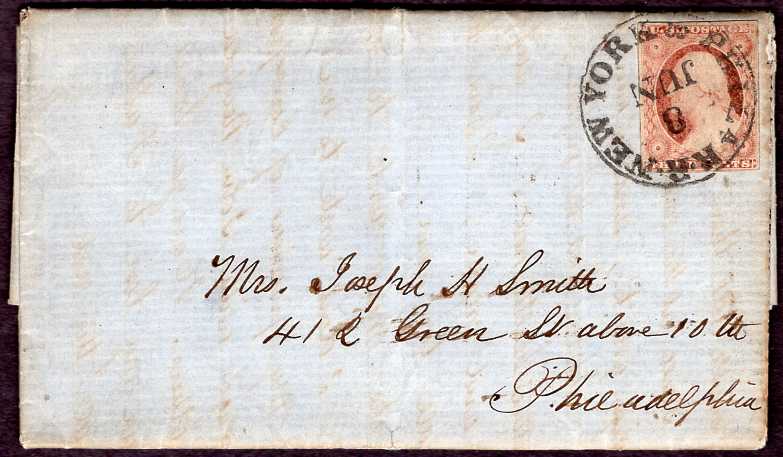 NEW YORK & PHILA R.R.
JUN
8
U.S. POSTAGE
CENTS
Mrs. Joseph H Smith
412 Green St. above 10 th
Philadelphia